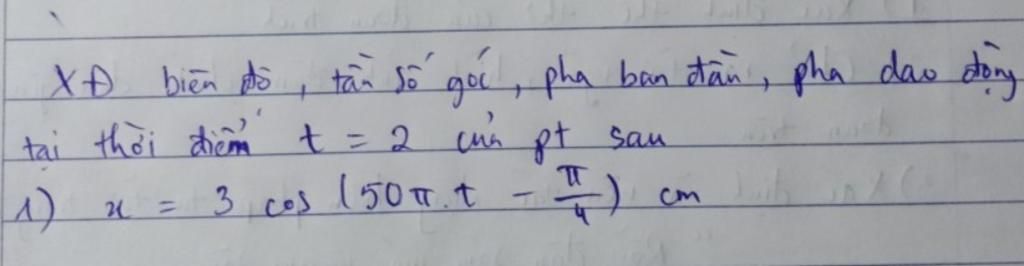 XĐ biên độ, tần số góc, pha ban đầu, pha dao động
tại thời điểm t = 2 của pt sau
1) x = 3 cos (50π.t - π/4) cm